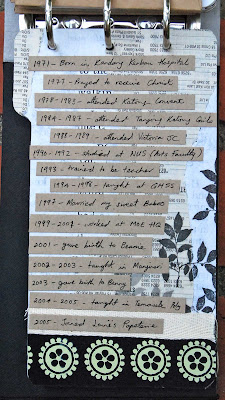 1971 - Born in Kandang Kerbau Hospital
1977 - Prayed to receive Christ
1978-1983 - attended Katong Convent
1984-1987 - attended Tanjong Katong Girls'
1988-1989 - attended Victoria JC
1990-1992 - studied at NUS (Arts Faculty)
1993 - trained to be teacher
1994-1996 - taught at GHSS
1997 - Married my sweet
1999-2001 - worked at MOE HQ
2001 - gave birth to
2002-2003 - taught in
2003 - gave birth to
2004-2005 - taught in Temasek Poly
2005 - Joined Papeterie